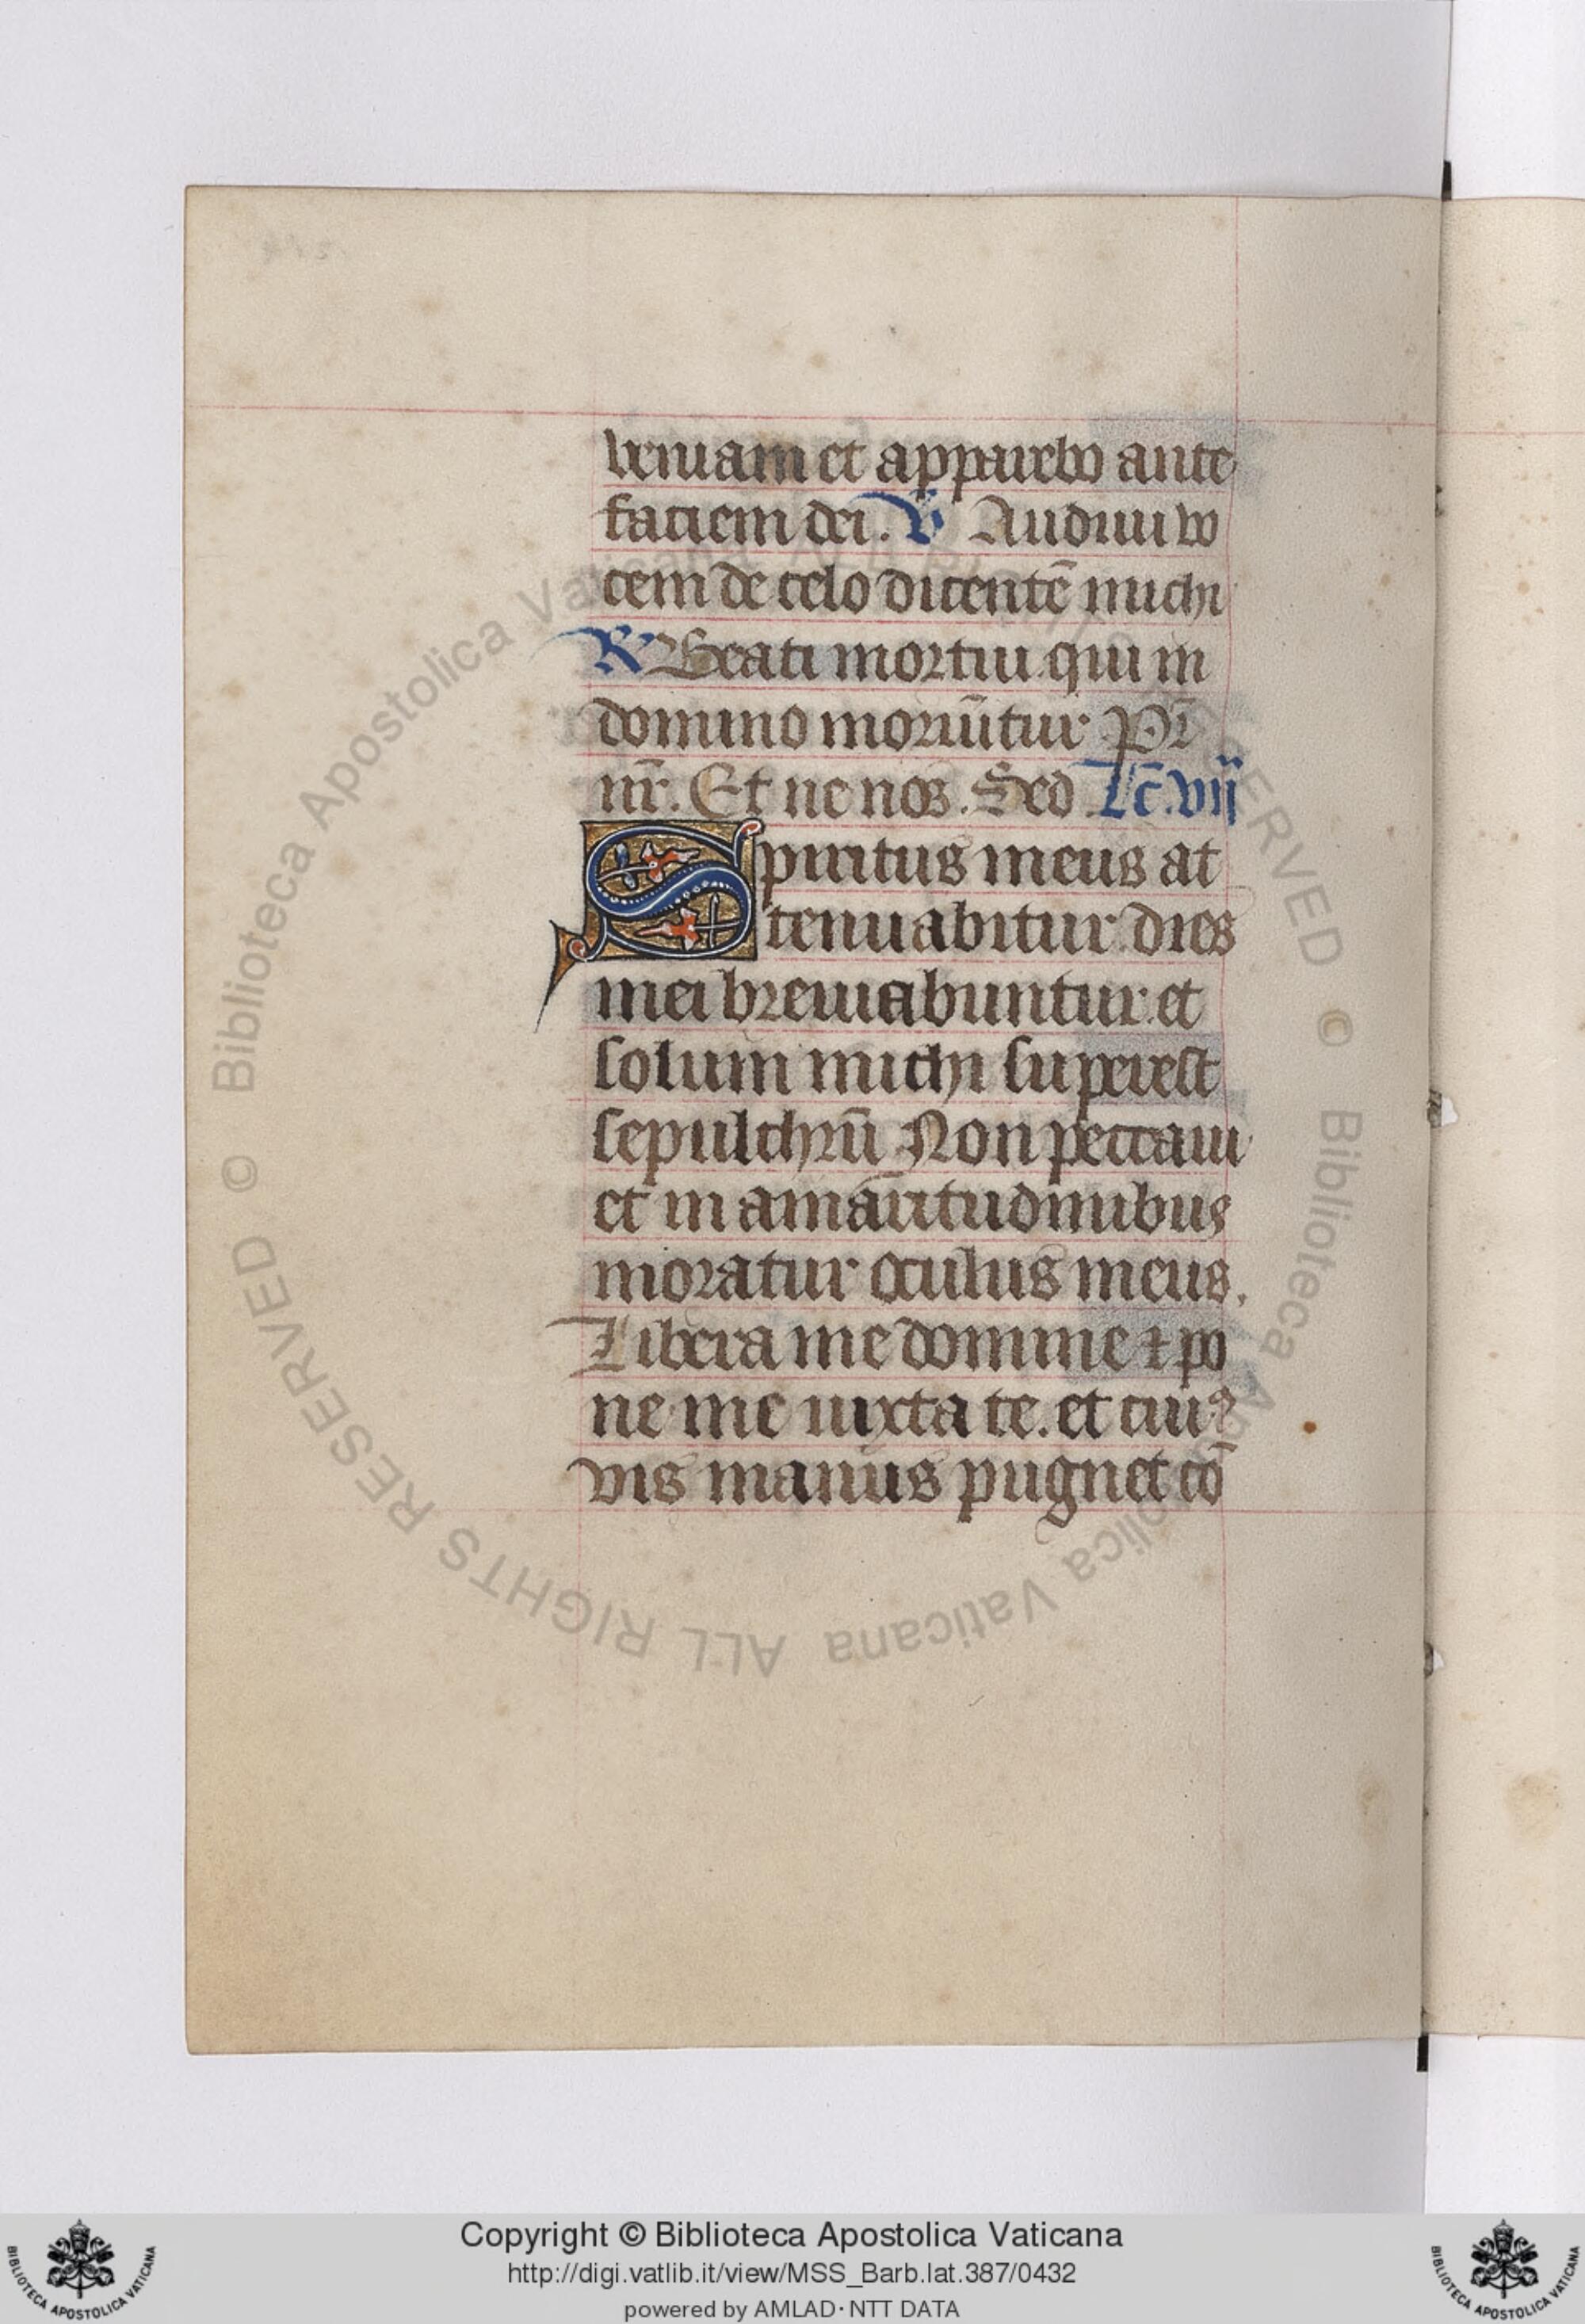 veniam et apparebo ante
faciem dei. V Audiui vo
cem de celo dicentē michi
R Beati mortui qui in
domino moriūtur Pr̄
nr̄. Et ne nos. Sed Lc̄. vij
Spiritus meus at
tenuabitur dies
mei breuiabuntur. et
solum michi superest
sepulchrū Non peccaui
et in amaritudinibus
moratur oculus meus.
Libera me domine ⁊ po
ne me iuxta te. et cui9
vis manus pugnet cō
© Biblioteca Apostolica Vaticana ALL RIGHTS RESERVED © Biblioteca Apostolica Vaticana ALL RIGHTS RESERVED
Copyright © Biblioteca Apostolica Vaticana
http://digi.vatlib.it/view/MSS_Barb.lat.387/0432
powered by AMLAD·NTT DATA
BIBLIOTECA APOSTOLICA VATICANA
BIBLIOTECA APOSTOLICA VATICANA